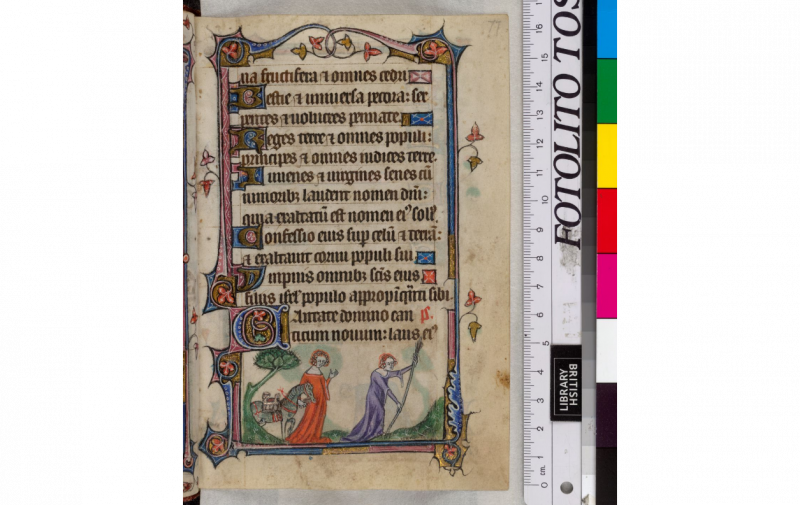 77
na fructifera ⁊ omnes cedri
Bestie ⁊ uniuersa pecora: ser
pentes ⁊ uolucres pennate.
Reges terre ⁊ omnes populi:
principes ⁊ omnes iudices terre.
Iuuenes ⁊ uirgines senes cũ
iunioribꝫ laudent nomen dñi:
quia exaltatũ est nomen eiꝰ soliꝰ
Confessio eius sup celũ ⁊ terrã:
⁊ exaltauit cornu populi sui
Ympnus omnibꝫ scĩs eius
filiis isrl populo appropĩqũti sibi
Cantate domino can ps.
ticum nouum: laus eiꝰ
FOTOLITO TOS
BRITISH
LIBRARY
0 cm. 1 2 3 4 5 6 7 8 9 10 11 12 13 14 15 16